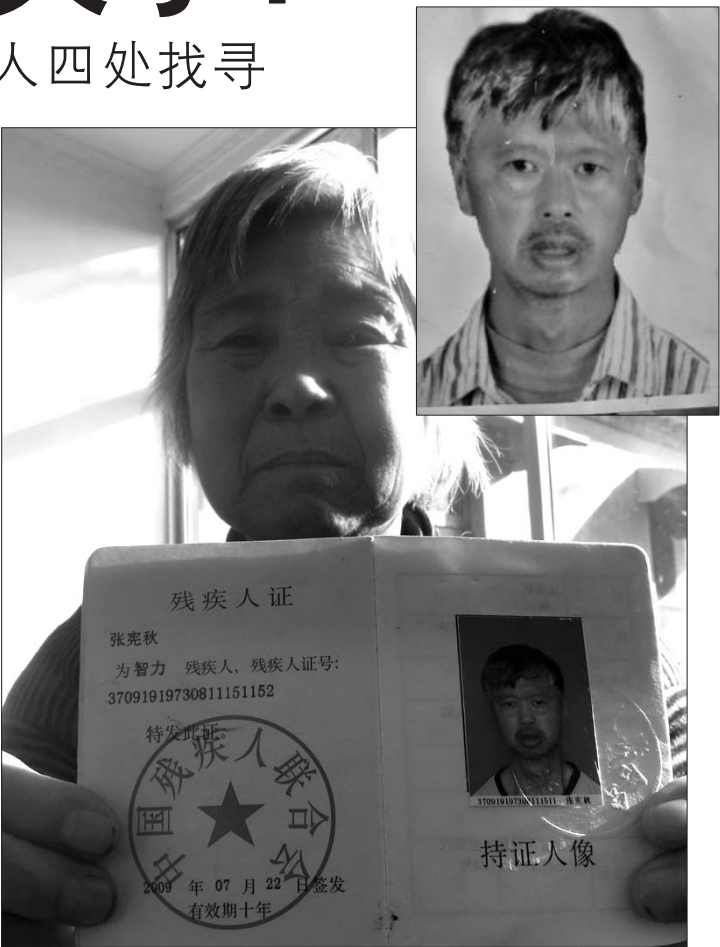 人四处找寻
残疾人证
张宪秋
为 智力 残疾人、残疾人证号:
37091919730811151152
特发此证。
中国残疾人联合会
2009 年 07 月 22 日签发
有效期十年
370919197308111511 张宪秋
持证人像